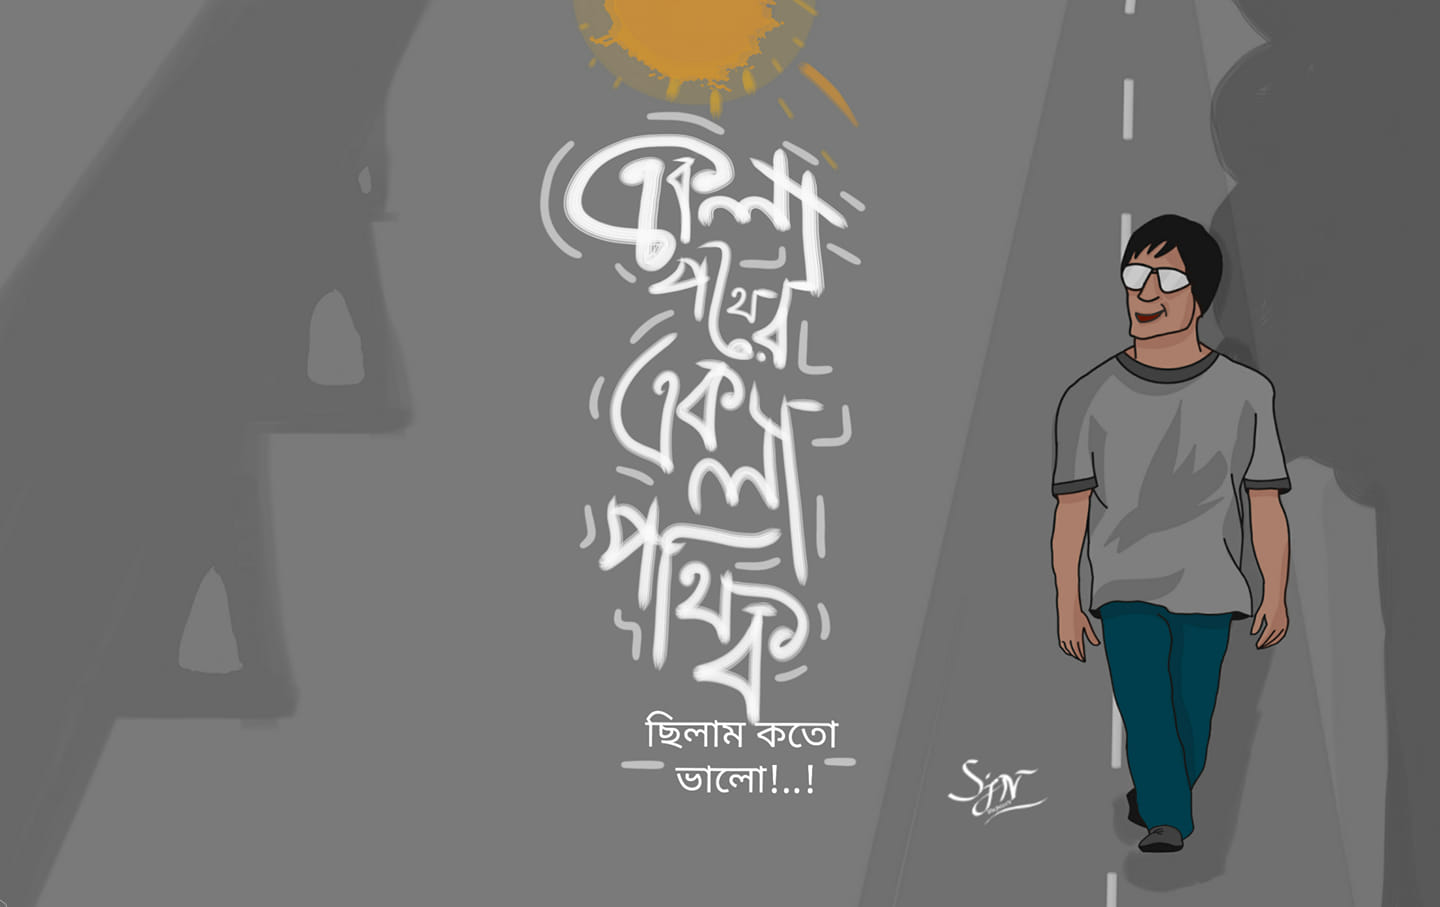 একলা
পথের
একলা
পথিক
ছিলাম কতো
ভালো!..!
SjN